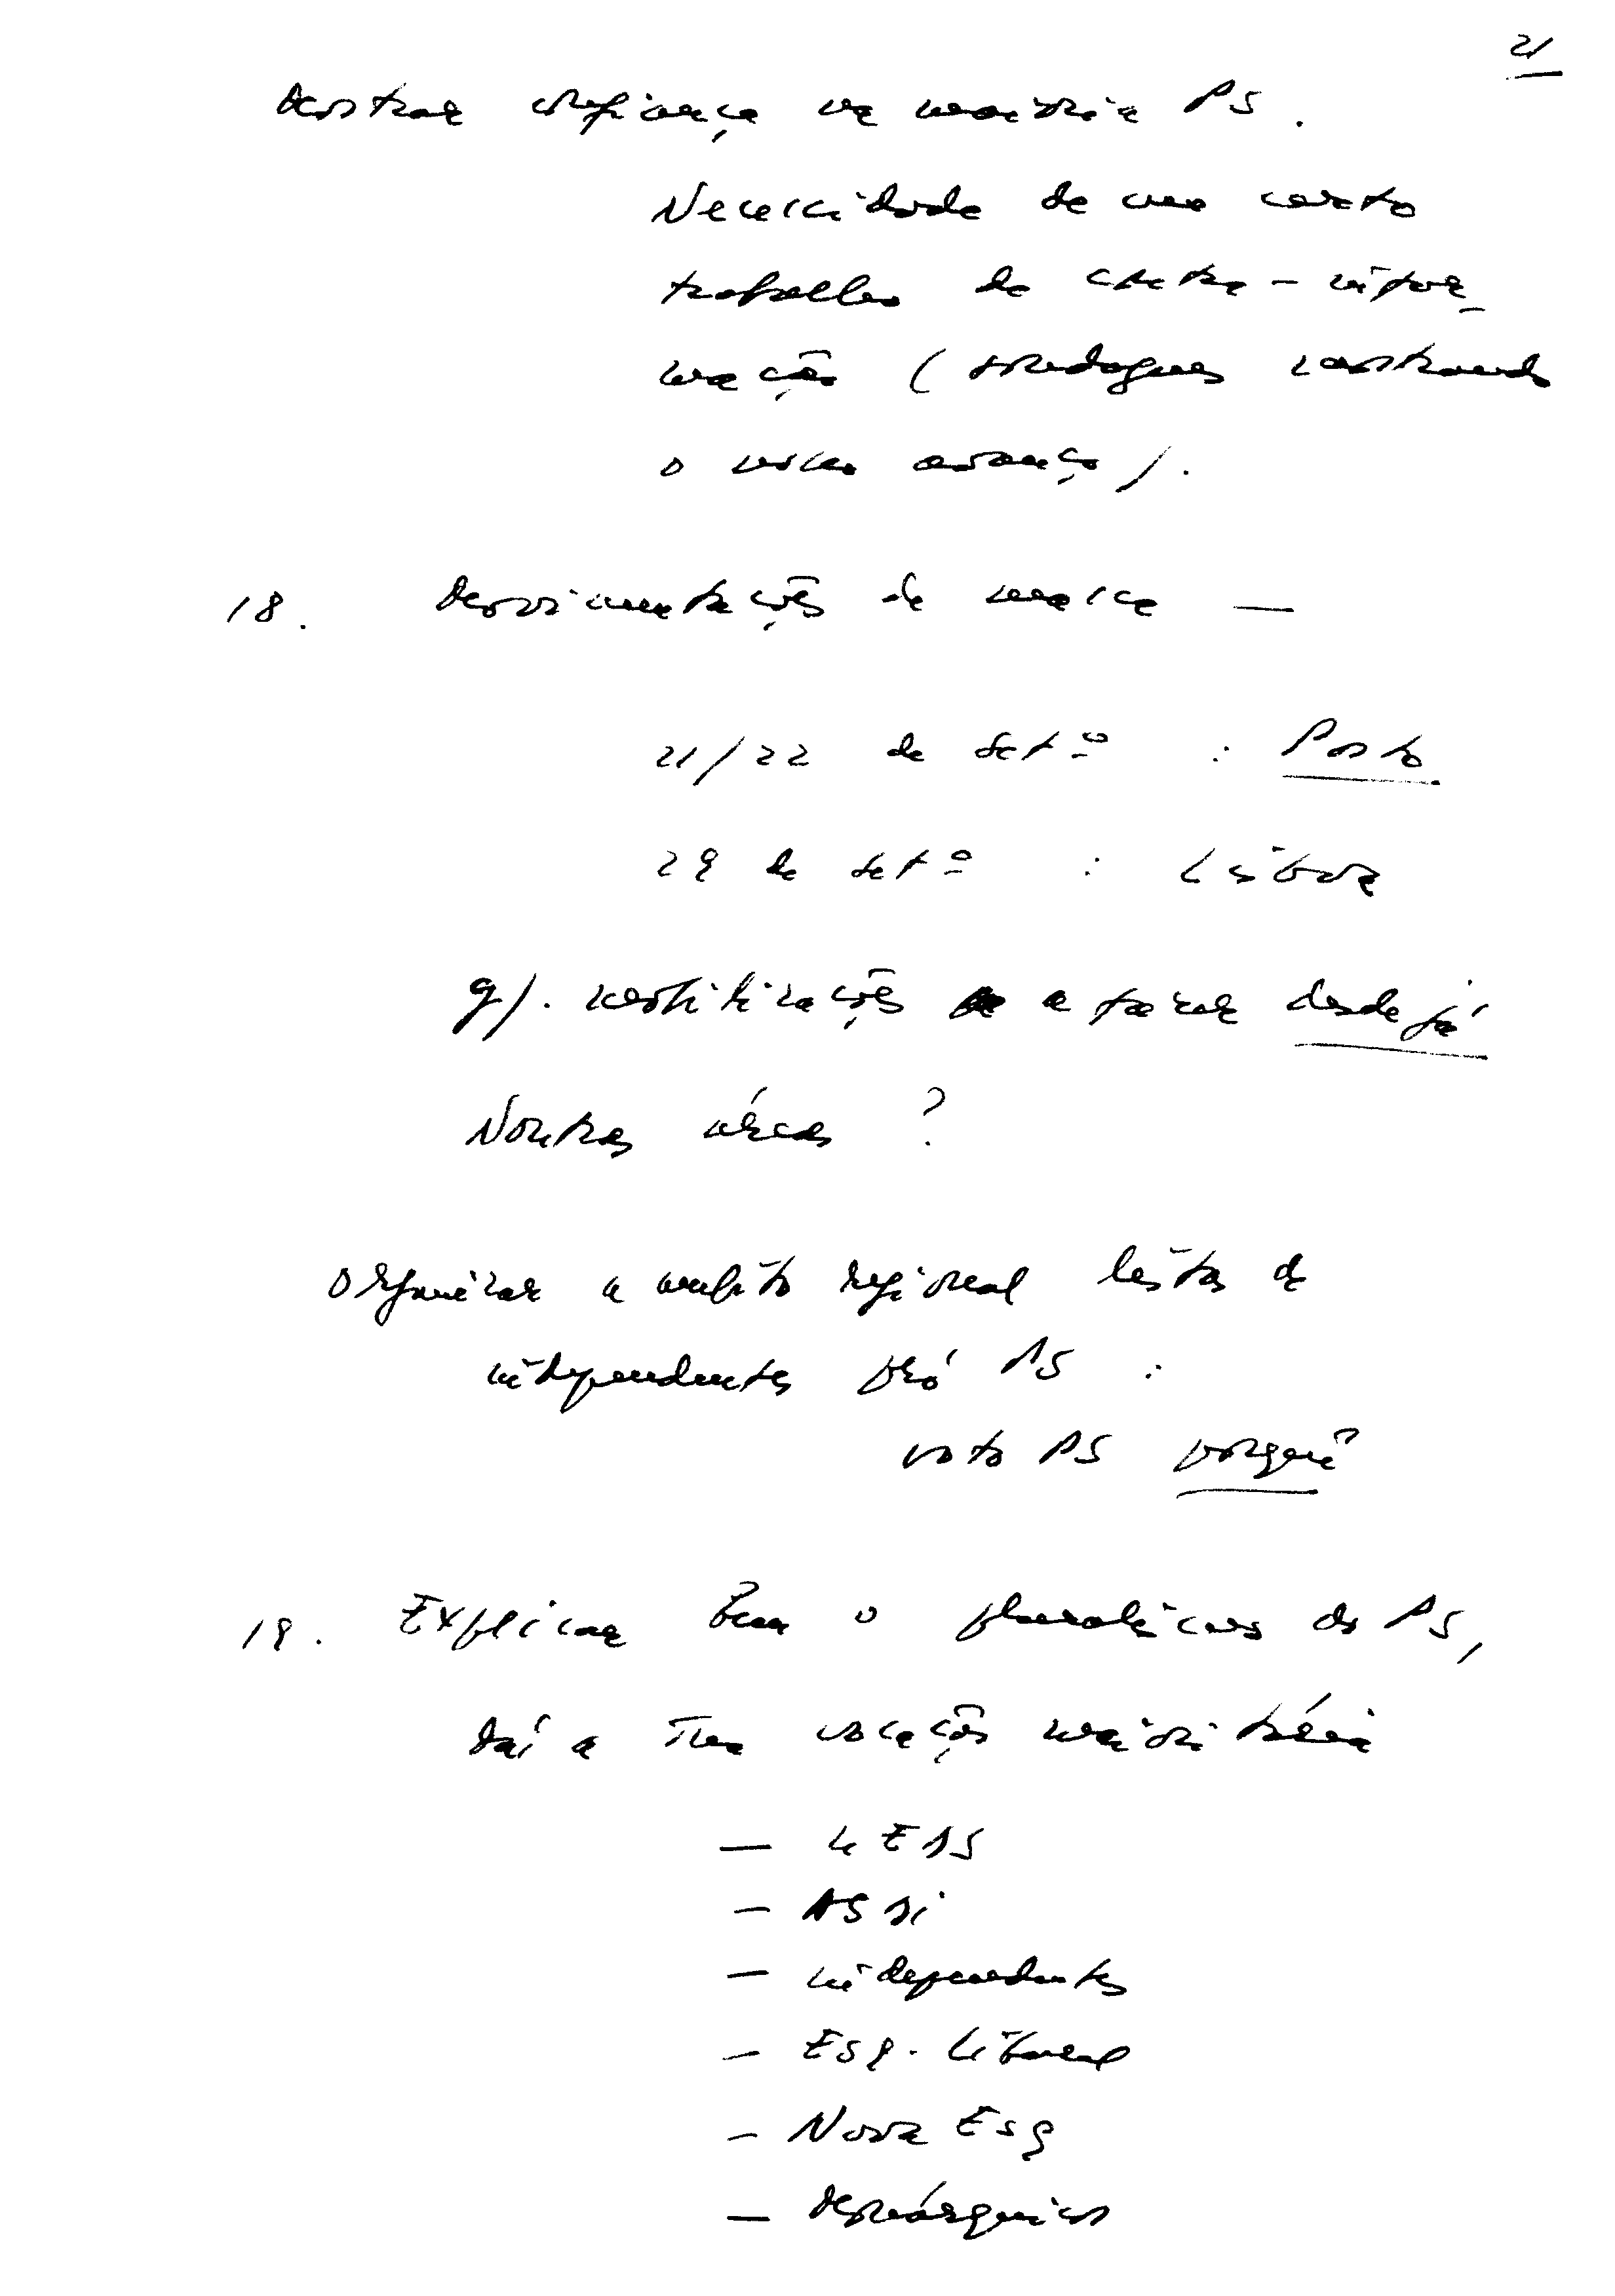 21
Mostrar confiança na maioria PS.
Necessidade de um certo
trabalho de contra-infor-
mação (sondagens mostrando
o nosso avanço).
18. Movimentações de massa —
21/22 de Setº : Porto
29 de Setº : Lisboa
g). mobilizações a fazer desde já
Noutras áreas ?
Organizar a âmbito regional listas de
independentes pró PS :
voto PS porquê
19. Explicar bem o pluralismo do PS,
daí a sua vocação maioritária
— UEDS
— ASDI
— independentes
— Esq. Liberal
— Nova Esq
— Monárquicos